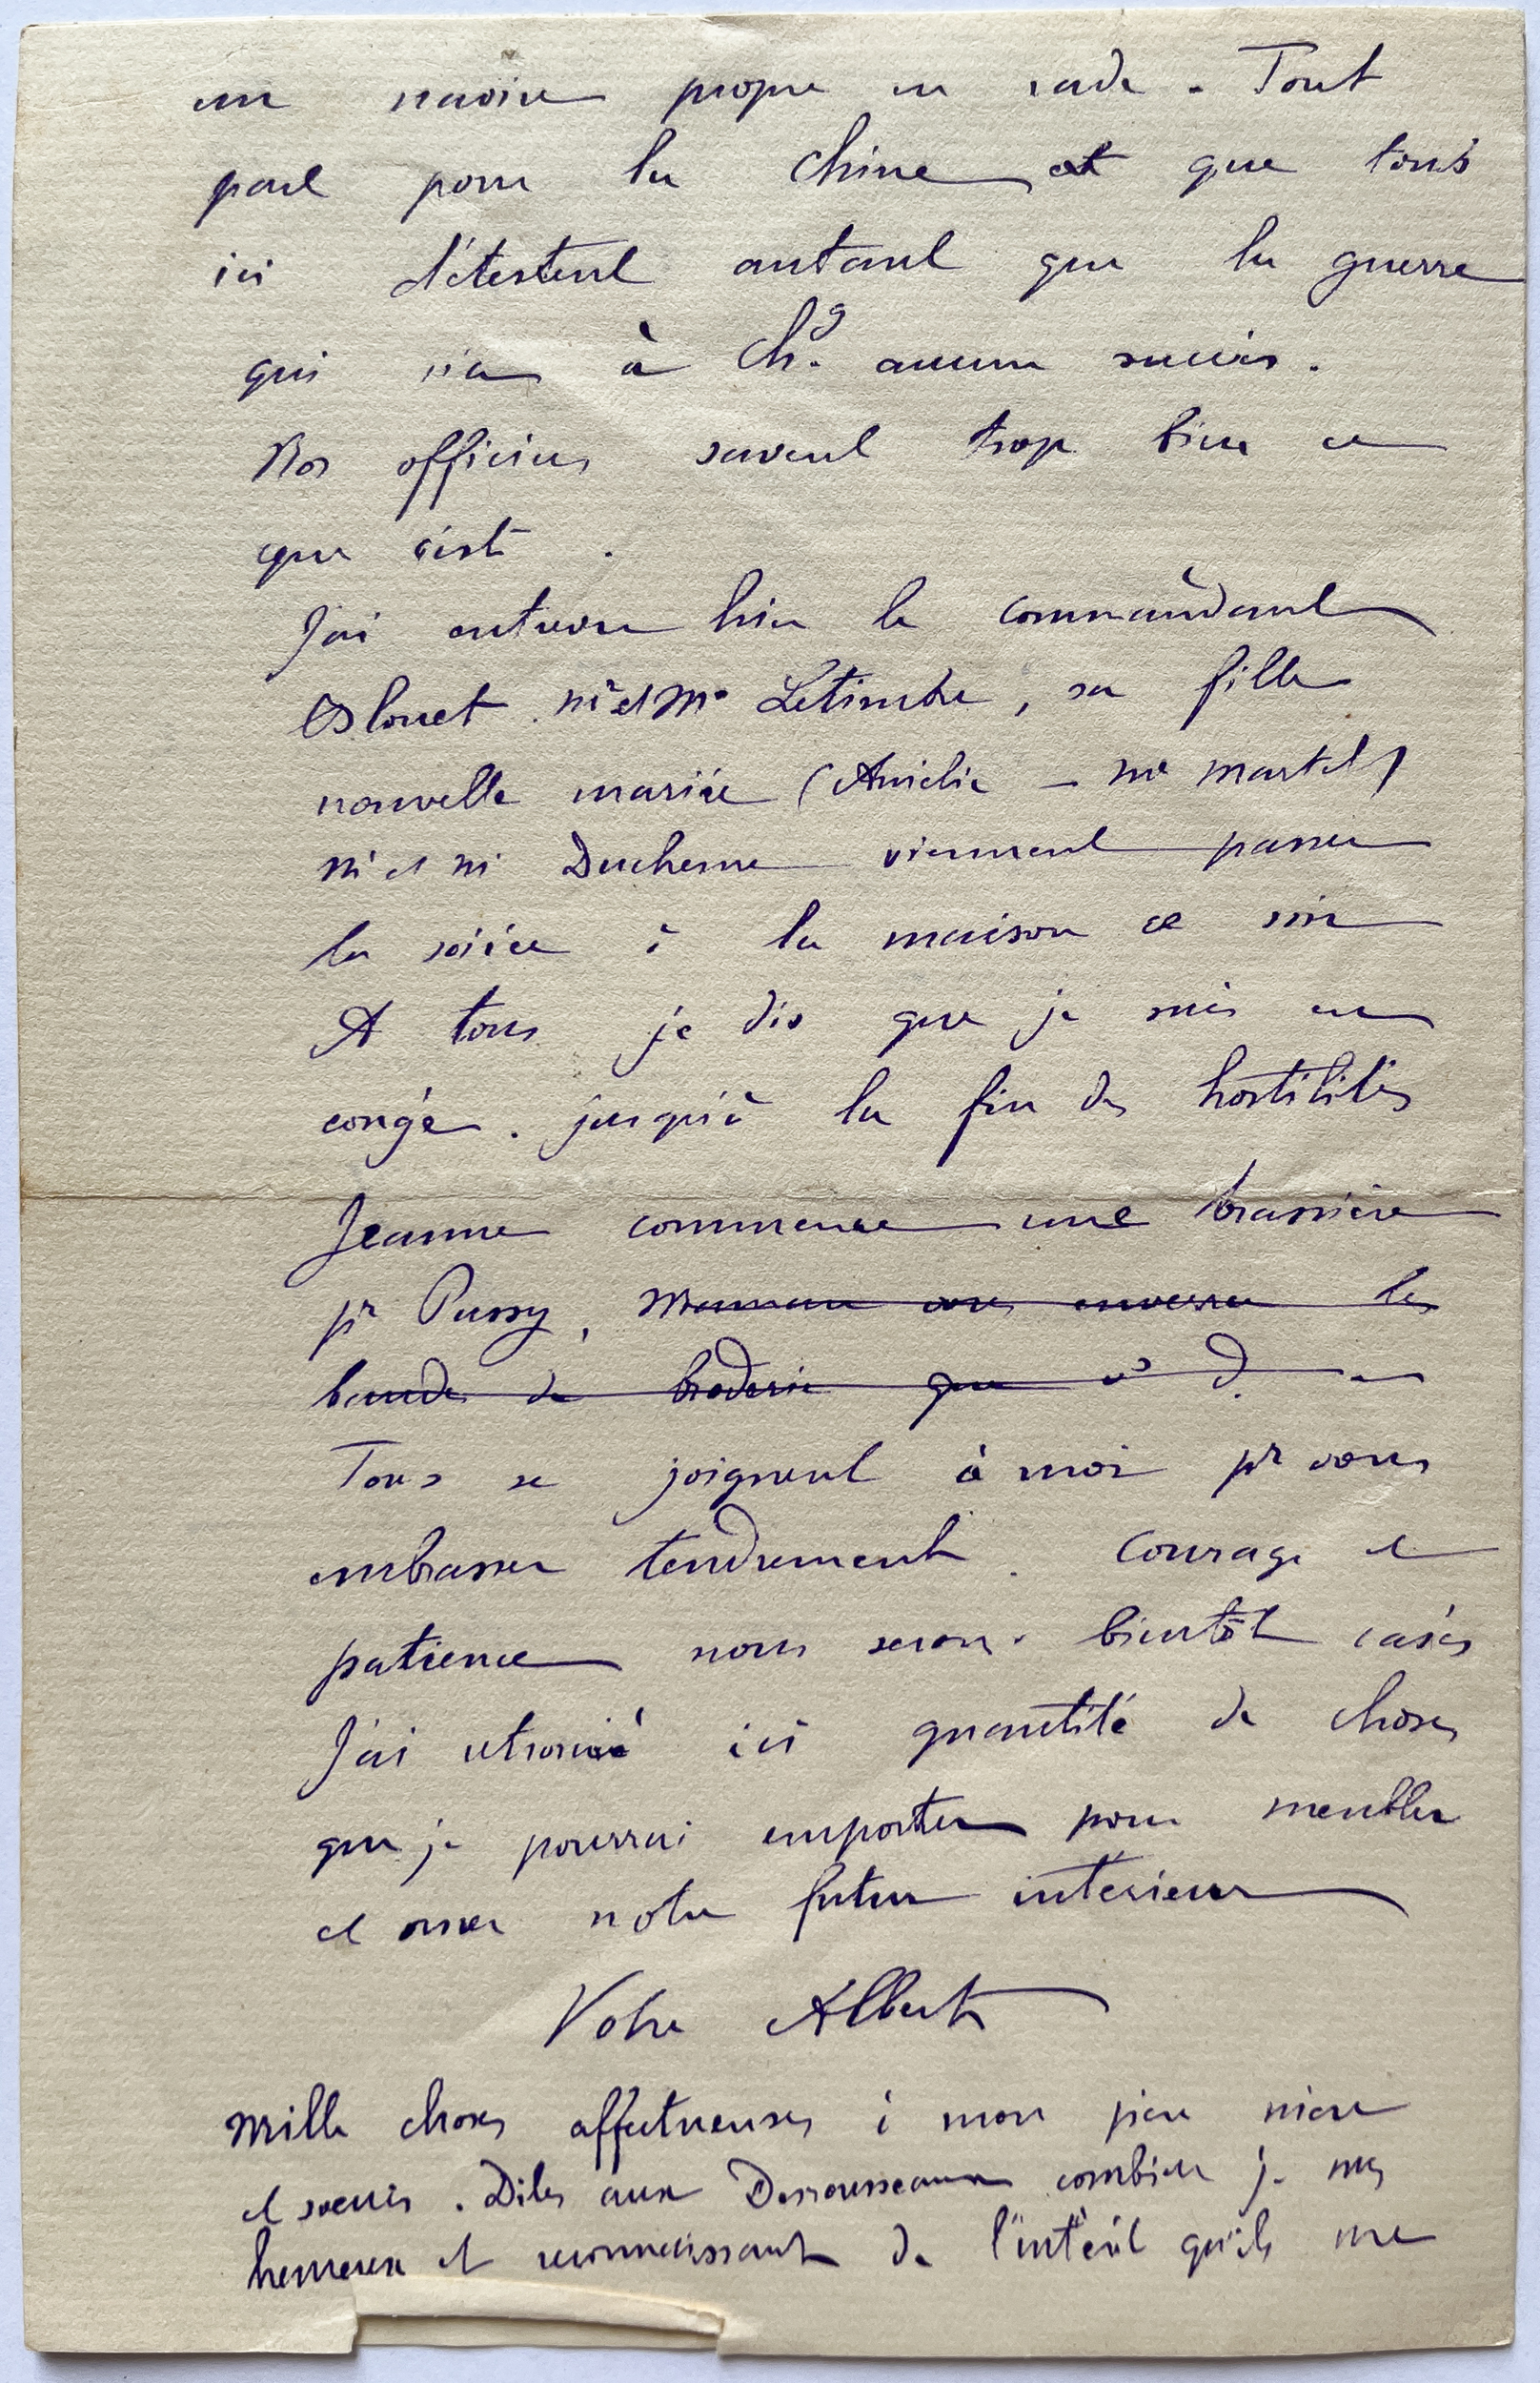 un navire propre en rade. Tout
part pour la Chine et que tous
ici détestent autant que la guerre
qui n'a à Chg. aucun succès.
Nos officiers savent trop bien ce
que c'est.
J'ai entrevu hier le commandant
et Mme Letimbre, sa fille
nouvelle mariée (Amélie - Me Martel)
Mr et Me Duchesne viennent passer
la soirée à la maison ce soir
A tous je dis que je suis en
congé. jusqu'à la fin des hostilités
Jeanne commence une brassière
pr Pussy, ~~Maman vous enverra les~~
~~bandes de broderie que vs d.~~
Tous se joignent à moi pr vous
embrasser tendrement. Courage et
patience nous serons bientôt casés
J'ai retrouvé ici quantité de choses
que je pourrai emporter pour meubler
et orner notre futur intérieur
Votre Albert
Mille choses affectueuses à mon père mère
et soeurs. Dites aux Desrousseaux combien je suis
heureux et reconnaissant de l'intérêt qu'ils me